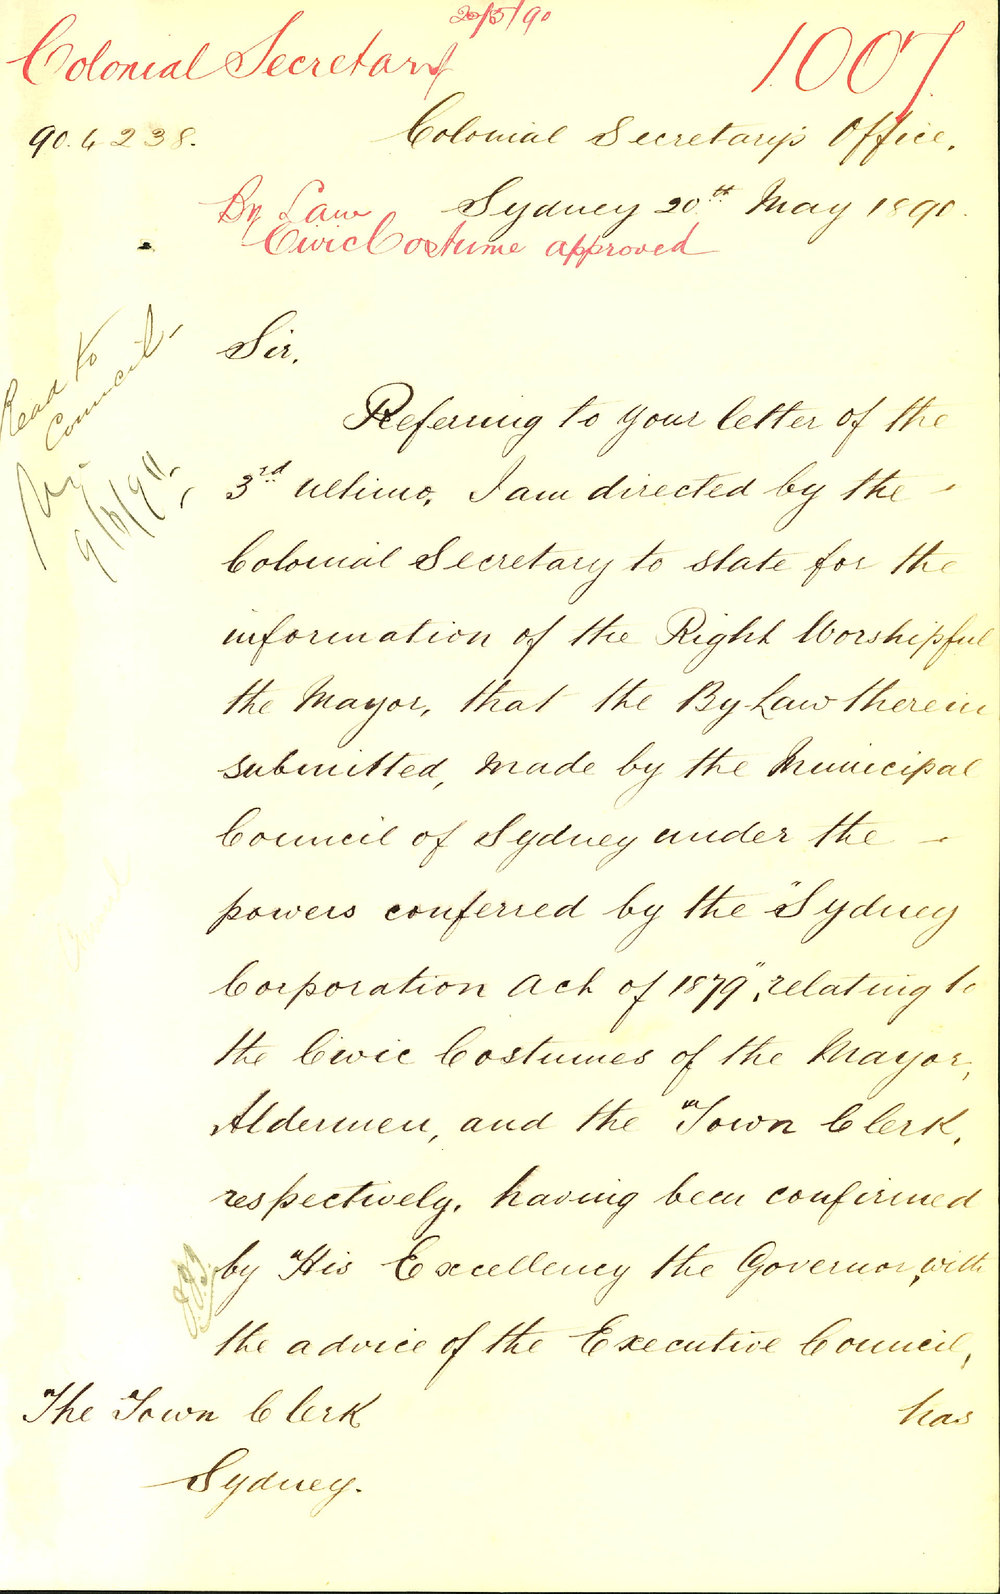 20/5/90
Colonial Secretary
1007
90.4238.
Colonial Secretary's Office,
Sydney 20th May 1890.
By Law
Civic Costume approved
Read to
Council.
9/6/90
Sir,
Referring to your letter of the
3rd ultimo, I am directed by the -
Colonial Secretary to state for the
information of the Right Worshipful
the Mayor, that the By-Law therein
submitted, made by the Municipal
Council of Sydney under the -
powers conferred by the "Sydney
Corporation Act of 1879", relating to
the Civic Costumes of the Mayor,
Aldermen, and the Town Clerk,
respectively, having been confirmed
by His Excellency the Governor, with
the advice of the Executive Council,
has
The Town Clerk
Sydney.